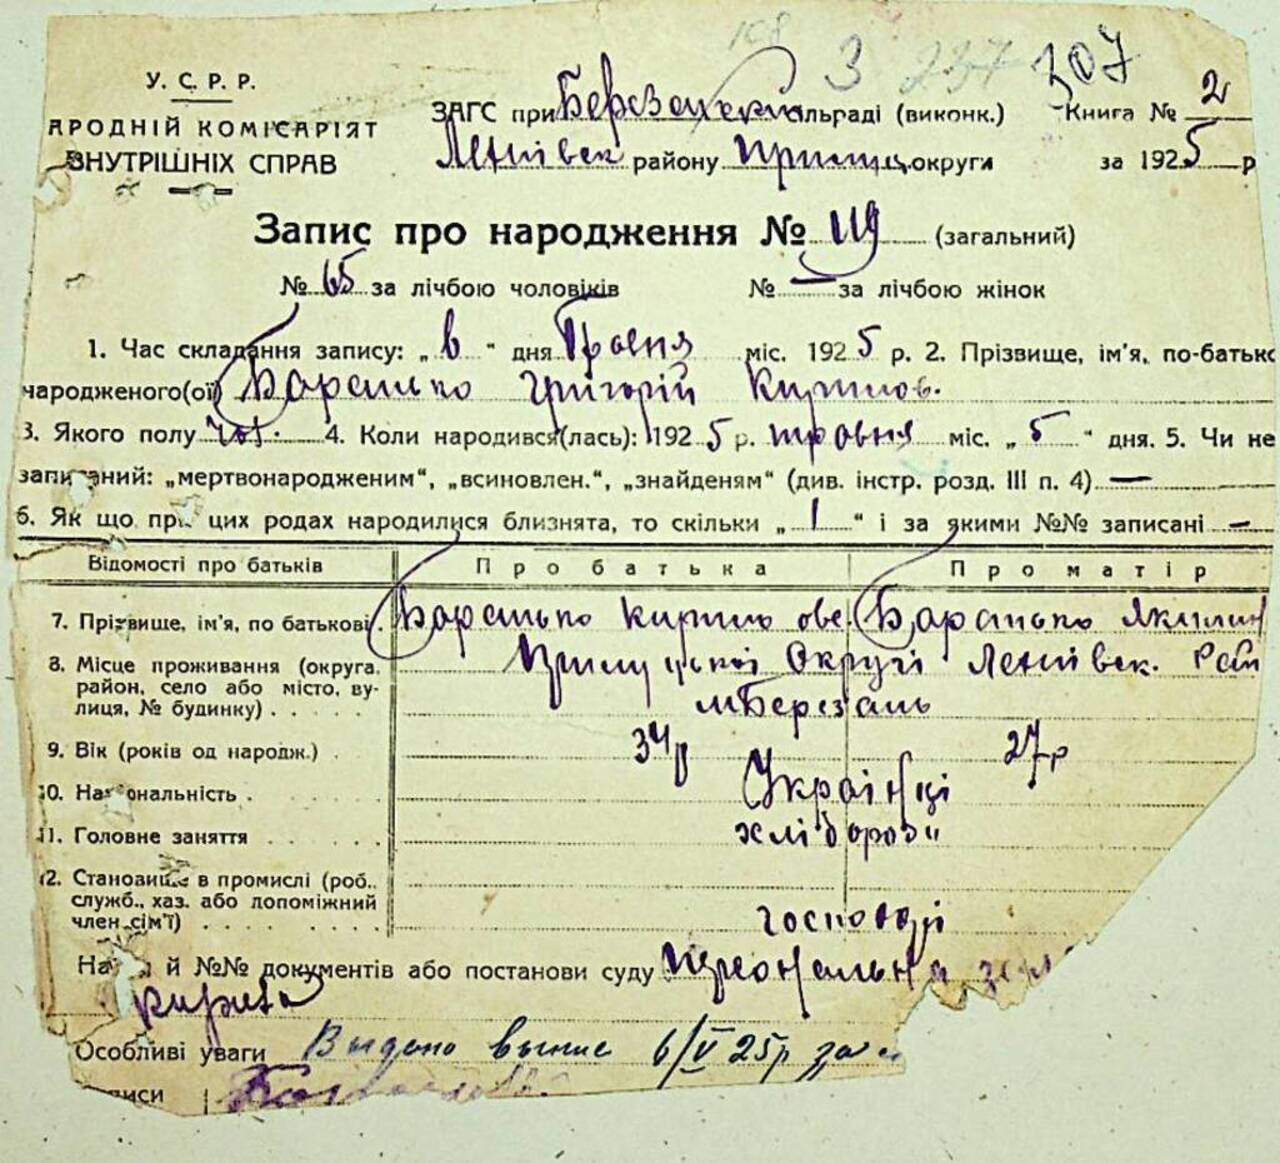 168 3 237 307
У. С. Р. Р.
АРОДНІЙ КОМІСАРІЯТ
ВНУТРІШНІХ СПРАВ
ЗАГС при Березанській сільраді (виконк.) Книга № 2
Ленінівськ району Прилуц. округи за 1925 р
Запис про народження № 119 (загальний)
№ 65 за лічбою чоловіків № — за лічбою жінок
1. Час складання запису: „ 6 “ дня Травня міс. 1925 р. 2. Прізвище, ім'я, по-батьк
народженого(ої) Григорій Кирилов.
3. Якого полу чол. 4. Коли народився(лась): 1925 р. травня міс. „ 5 “ дня. 5. Чи не
записаний: „мертвонародженим“, „всиновлен.“, „знайденям“ (див. інстр. розд. III п. 4) —
6. Як що при цих родах народилися близнята, то скільки „ 1 “ і за якими №№ записані —
Відомості про батьків Про батька Про матір
7. Прізвище, ім'я, по батькові. Кирило
8. Місце проживання (округа, район, село або місто, вулиця, № будинку) . . . . . Прилуцької Округі м Березань
9. Вік (років од народж.) . 34 р 27 р
10. Національність . Українці
11. Головне заняття . . . . . . хлібороби
12. Становище в промислі (роб., служб., хаз. або допоміжний член сім'ї) . . . . . . . господарі
На й №№ документів або постанови суду персональна
картка
Особливі уваги Выдано выпис 6/V 25р за
писи